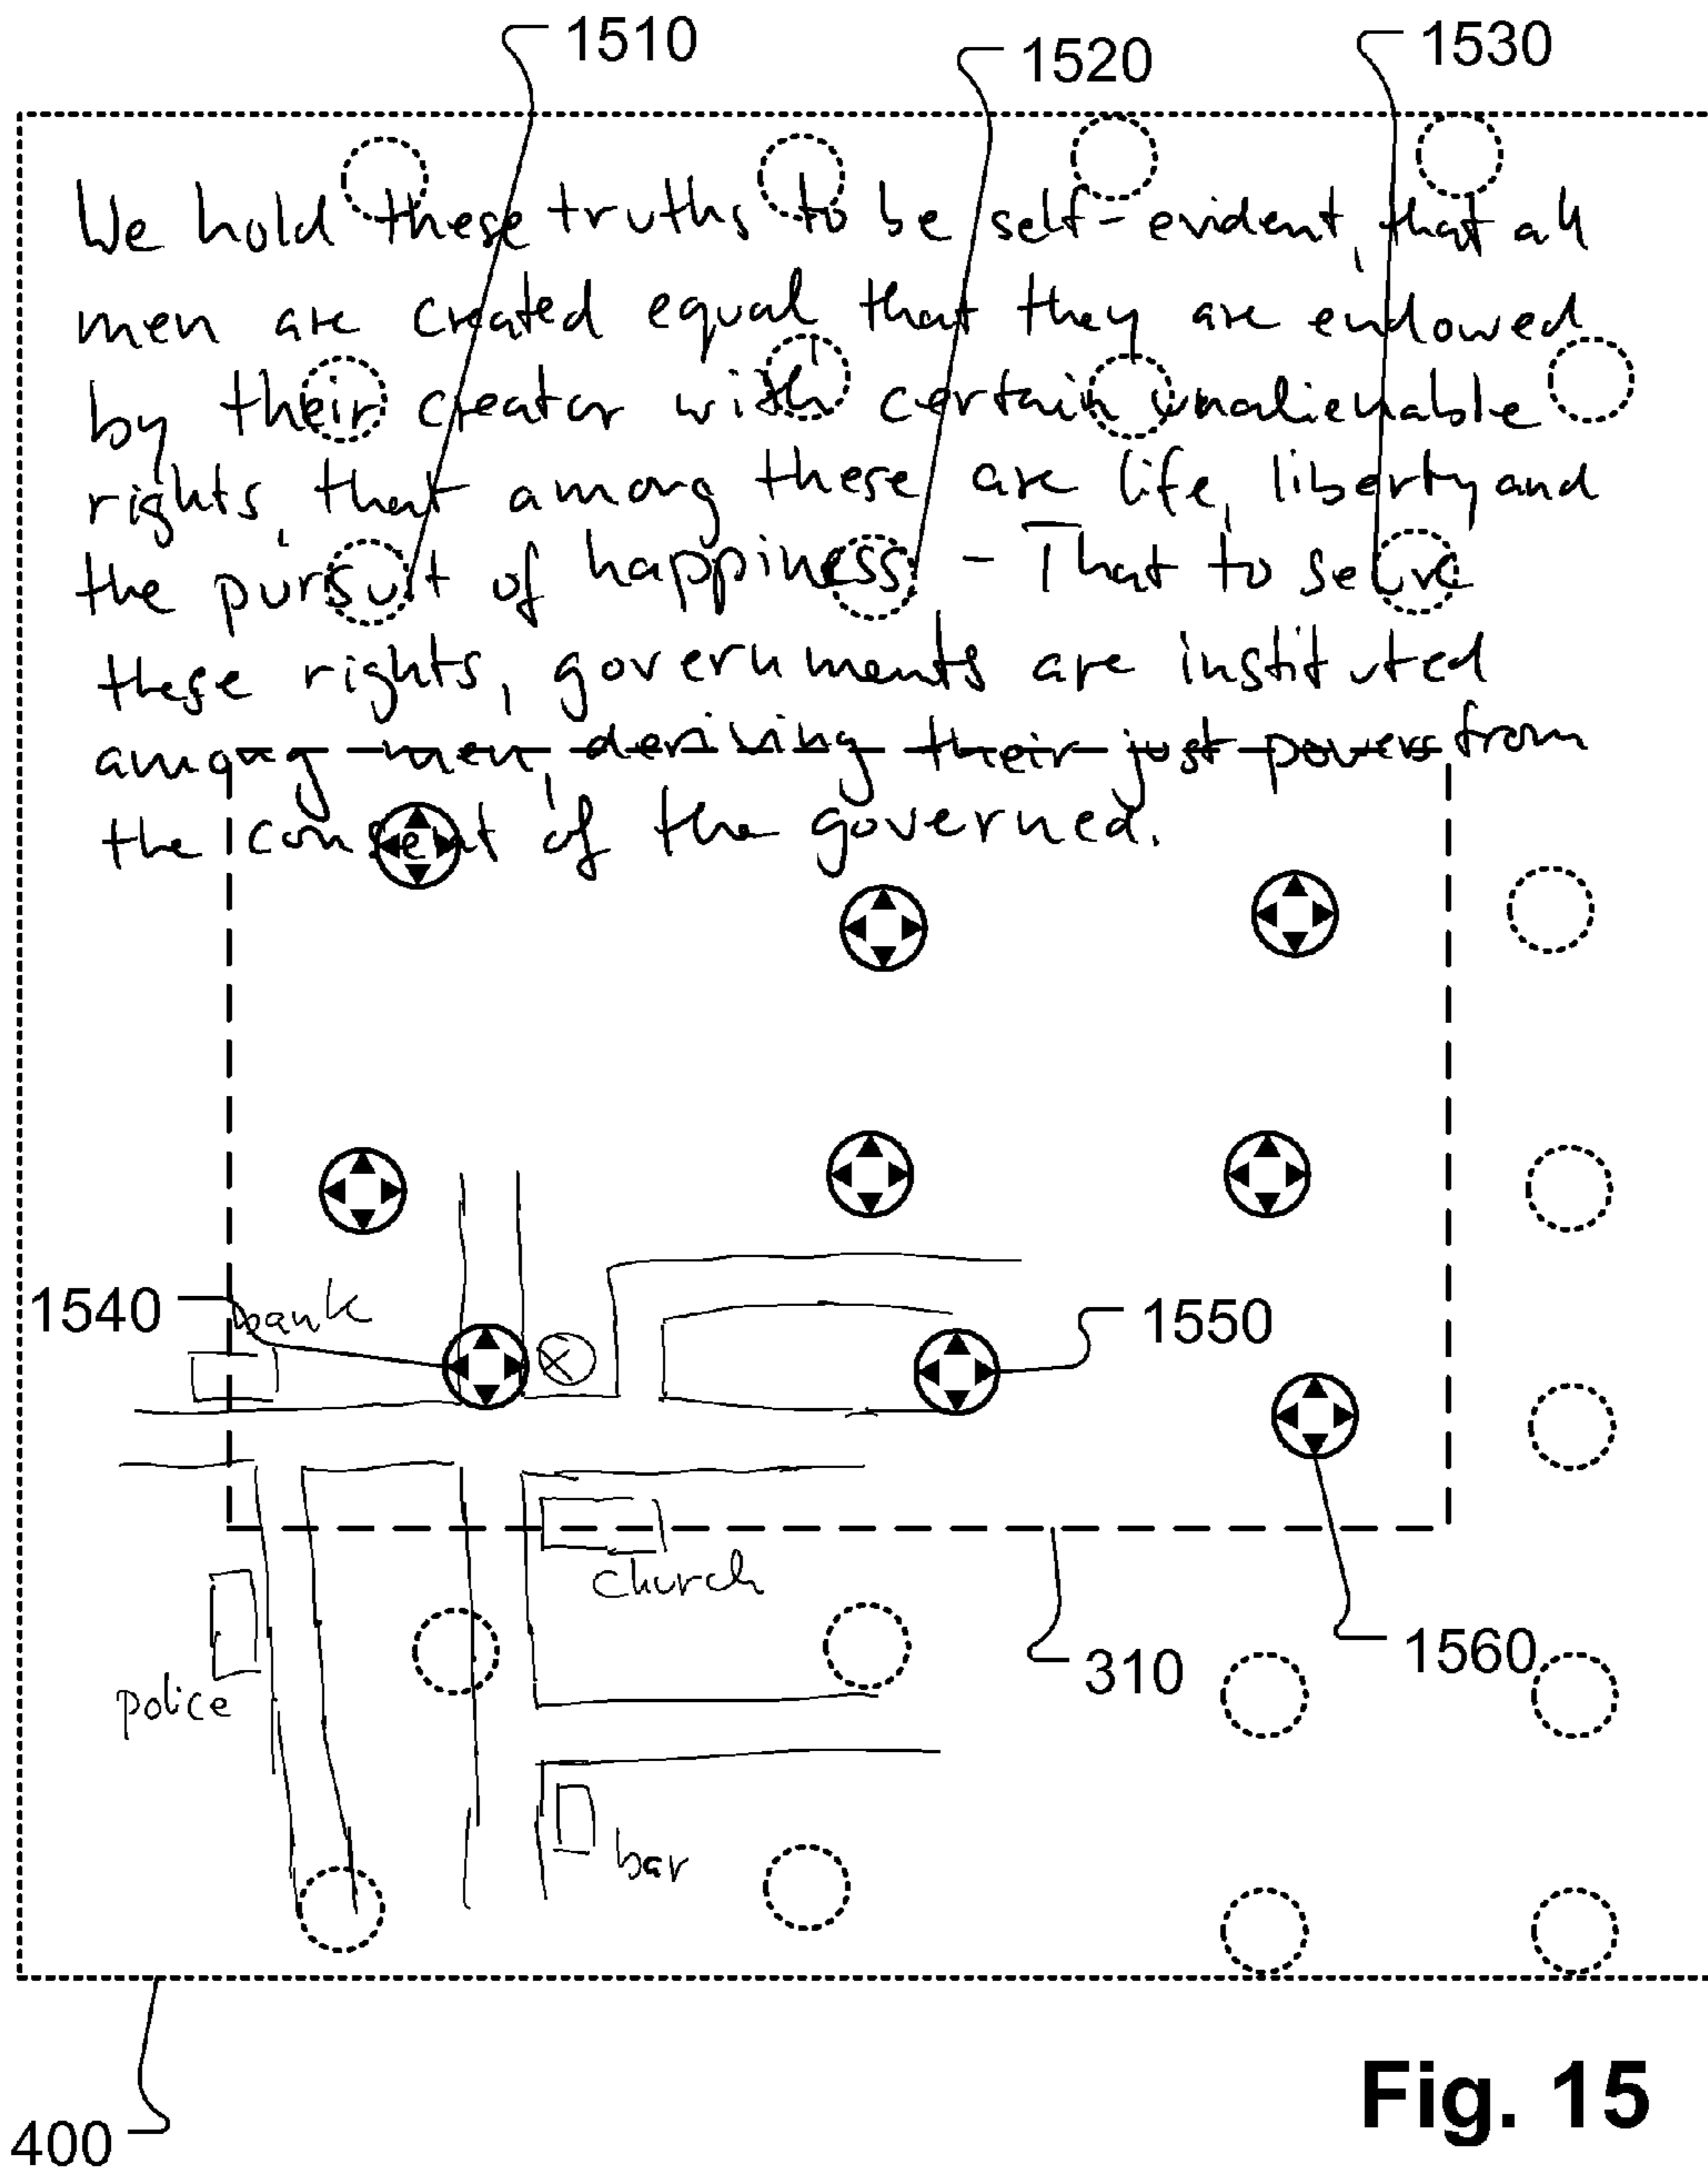 1510
1520
1530
We hold these truths to be self-evident, that all
men are created equal that they are endowed
by their creator with certain unalienable
rights, that among these are life, liberty and
the pursuit of happiness. - That to secure
these rights, governments are instituted
among men, deriving their just powers from
the consent of the governed.
1540
bank
1550
church
1560
310
police
bar
400
Fig. 15